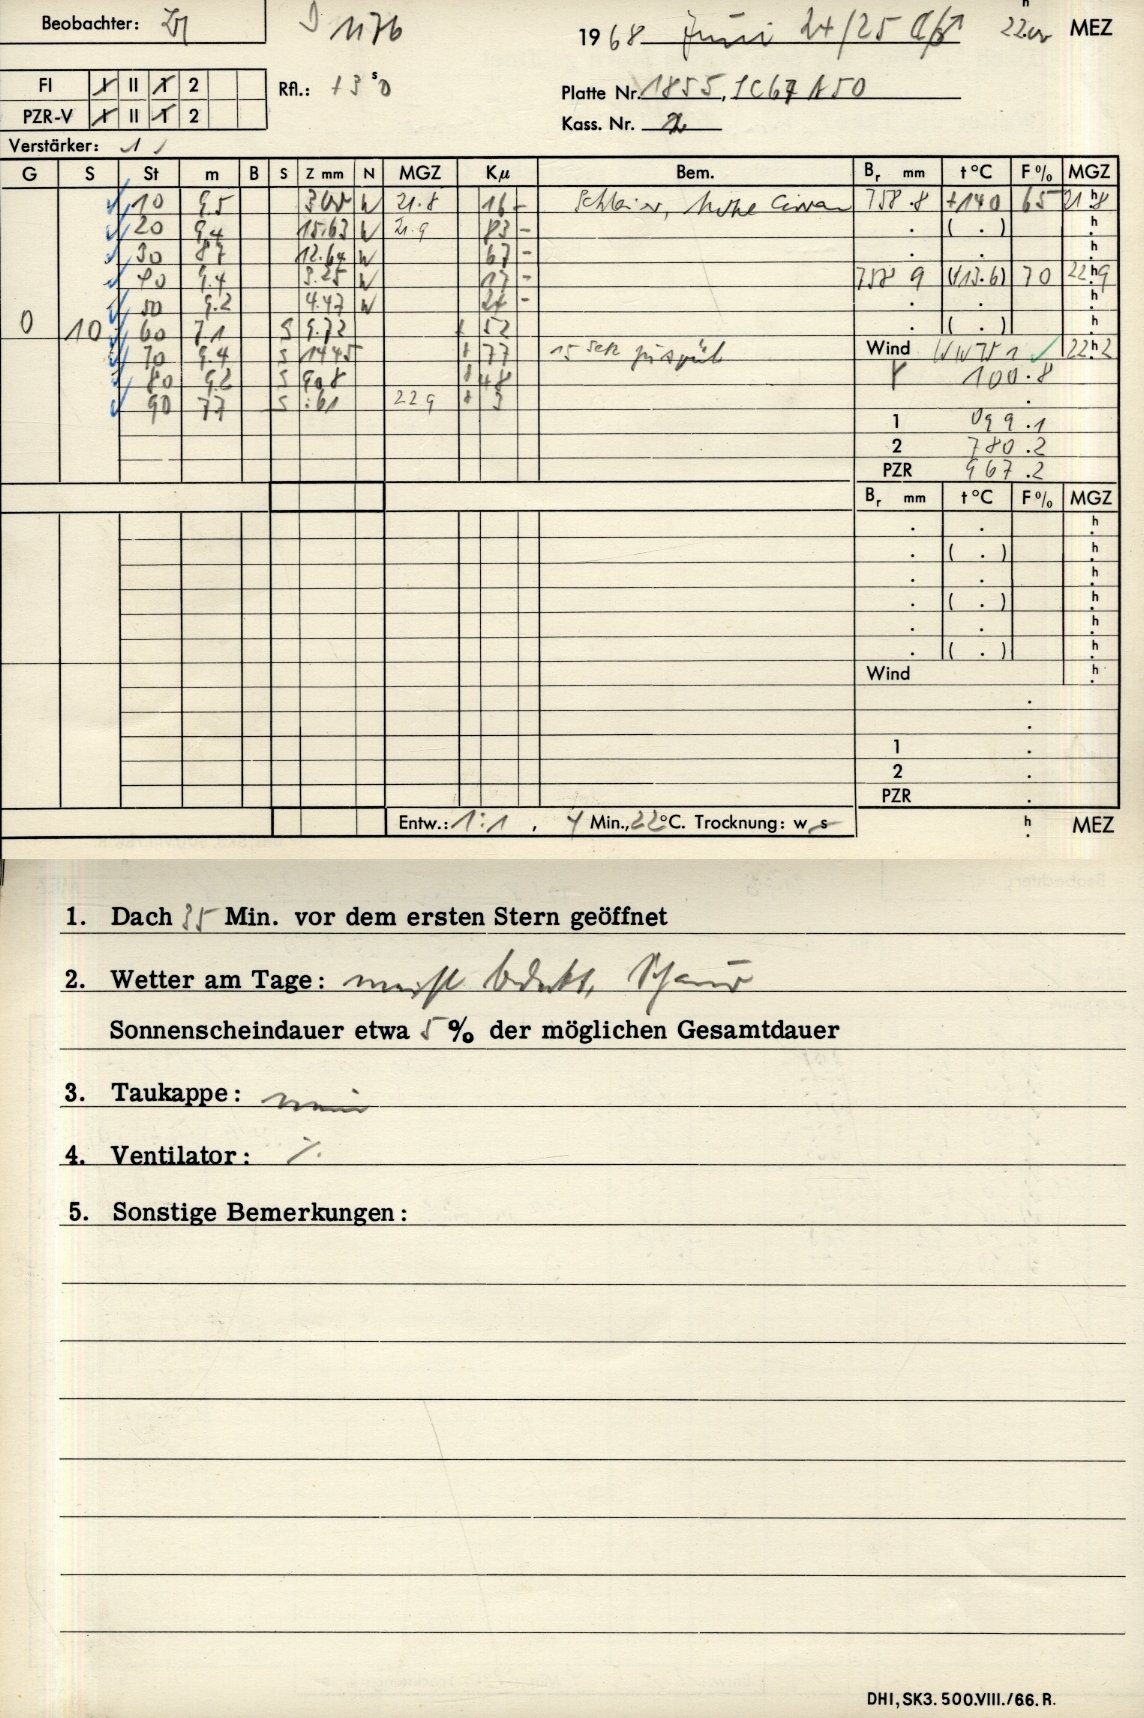 Beobachter:
1176
1968 Juni 24/25
22 h MEZ
FI I II 1 2
PZR-V I II 1 2
Rfl.: +3 s 0
Platte Nr. 1855,
Kass. Nr. 2
Verstärker: 1
G S St m B S Z mm N MGZ Kμ Bem. Br mm t°C F% MGZ
10 9.5 W 21.8 16 - Schleier, hohe 758.8 +14.0 65 21 h 8
20 9.4 15.63 W 21.9 83 - . ( . ) h
30 8.7 12.64 W 67 - . . h
40 9.4 3.25 W 17 - 758 9 (+13.6) 70 22 h 9
50 9.2 4.47 W 24 - . . h
0 10 60 7.1 S 9.72 + 52 . ( . ) h
70 9.4 S 14.45 + 77 15 sek zu spät Wind 22 h 2
80 9.2 S 9.08 + 48 100.8
90 7.7 S .61 22 9 + 3 .
1 099.1
2 780.2
PZR 967.2
Br mm t°C F% MGZ
. . h
. ( . ) h
. . h
. ( . ) h
. . h
. ( . ) h
Wind h
.
.
1 .
2 .
PZR .
Entw.: 1:1 , 4 Min., 22°C. Trocknung: w, s
h MEZ
1. Dach 35 Min. vor dem ersten Stern geöffnet
2. Wetter am Tage: meist bedeckt, Schauer
Sonnenscheindauer etwa 5 % der möglichen Gesamtdauer
3. Taukappe: nein
4. Ventilator: %.
5. Sonstige Bemerkungen:
DHI, SK3. 500.VIII./66. R.